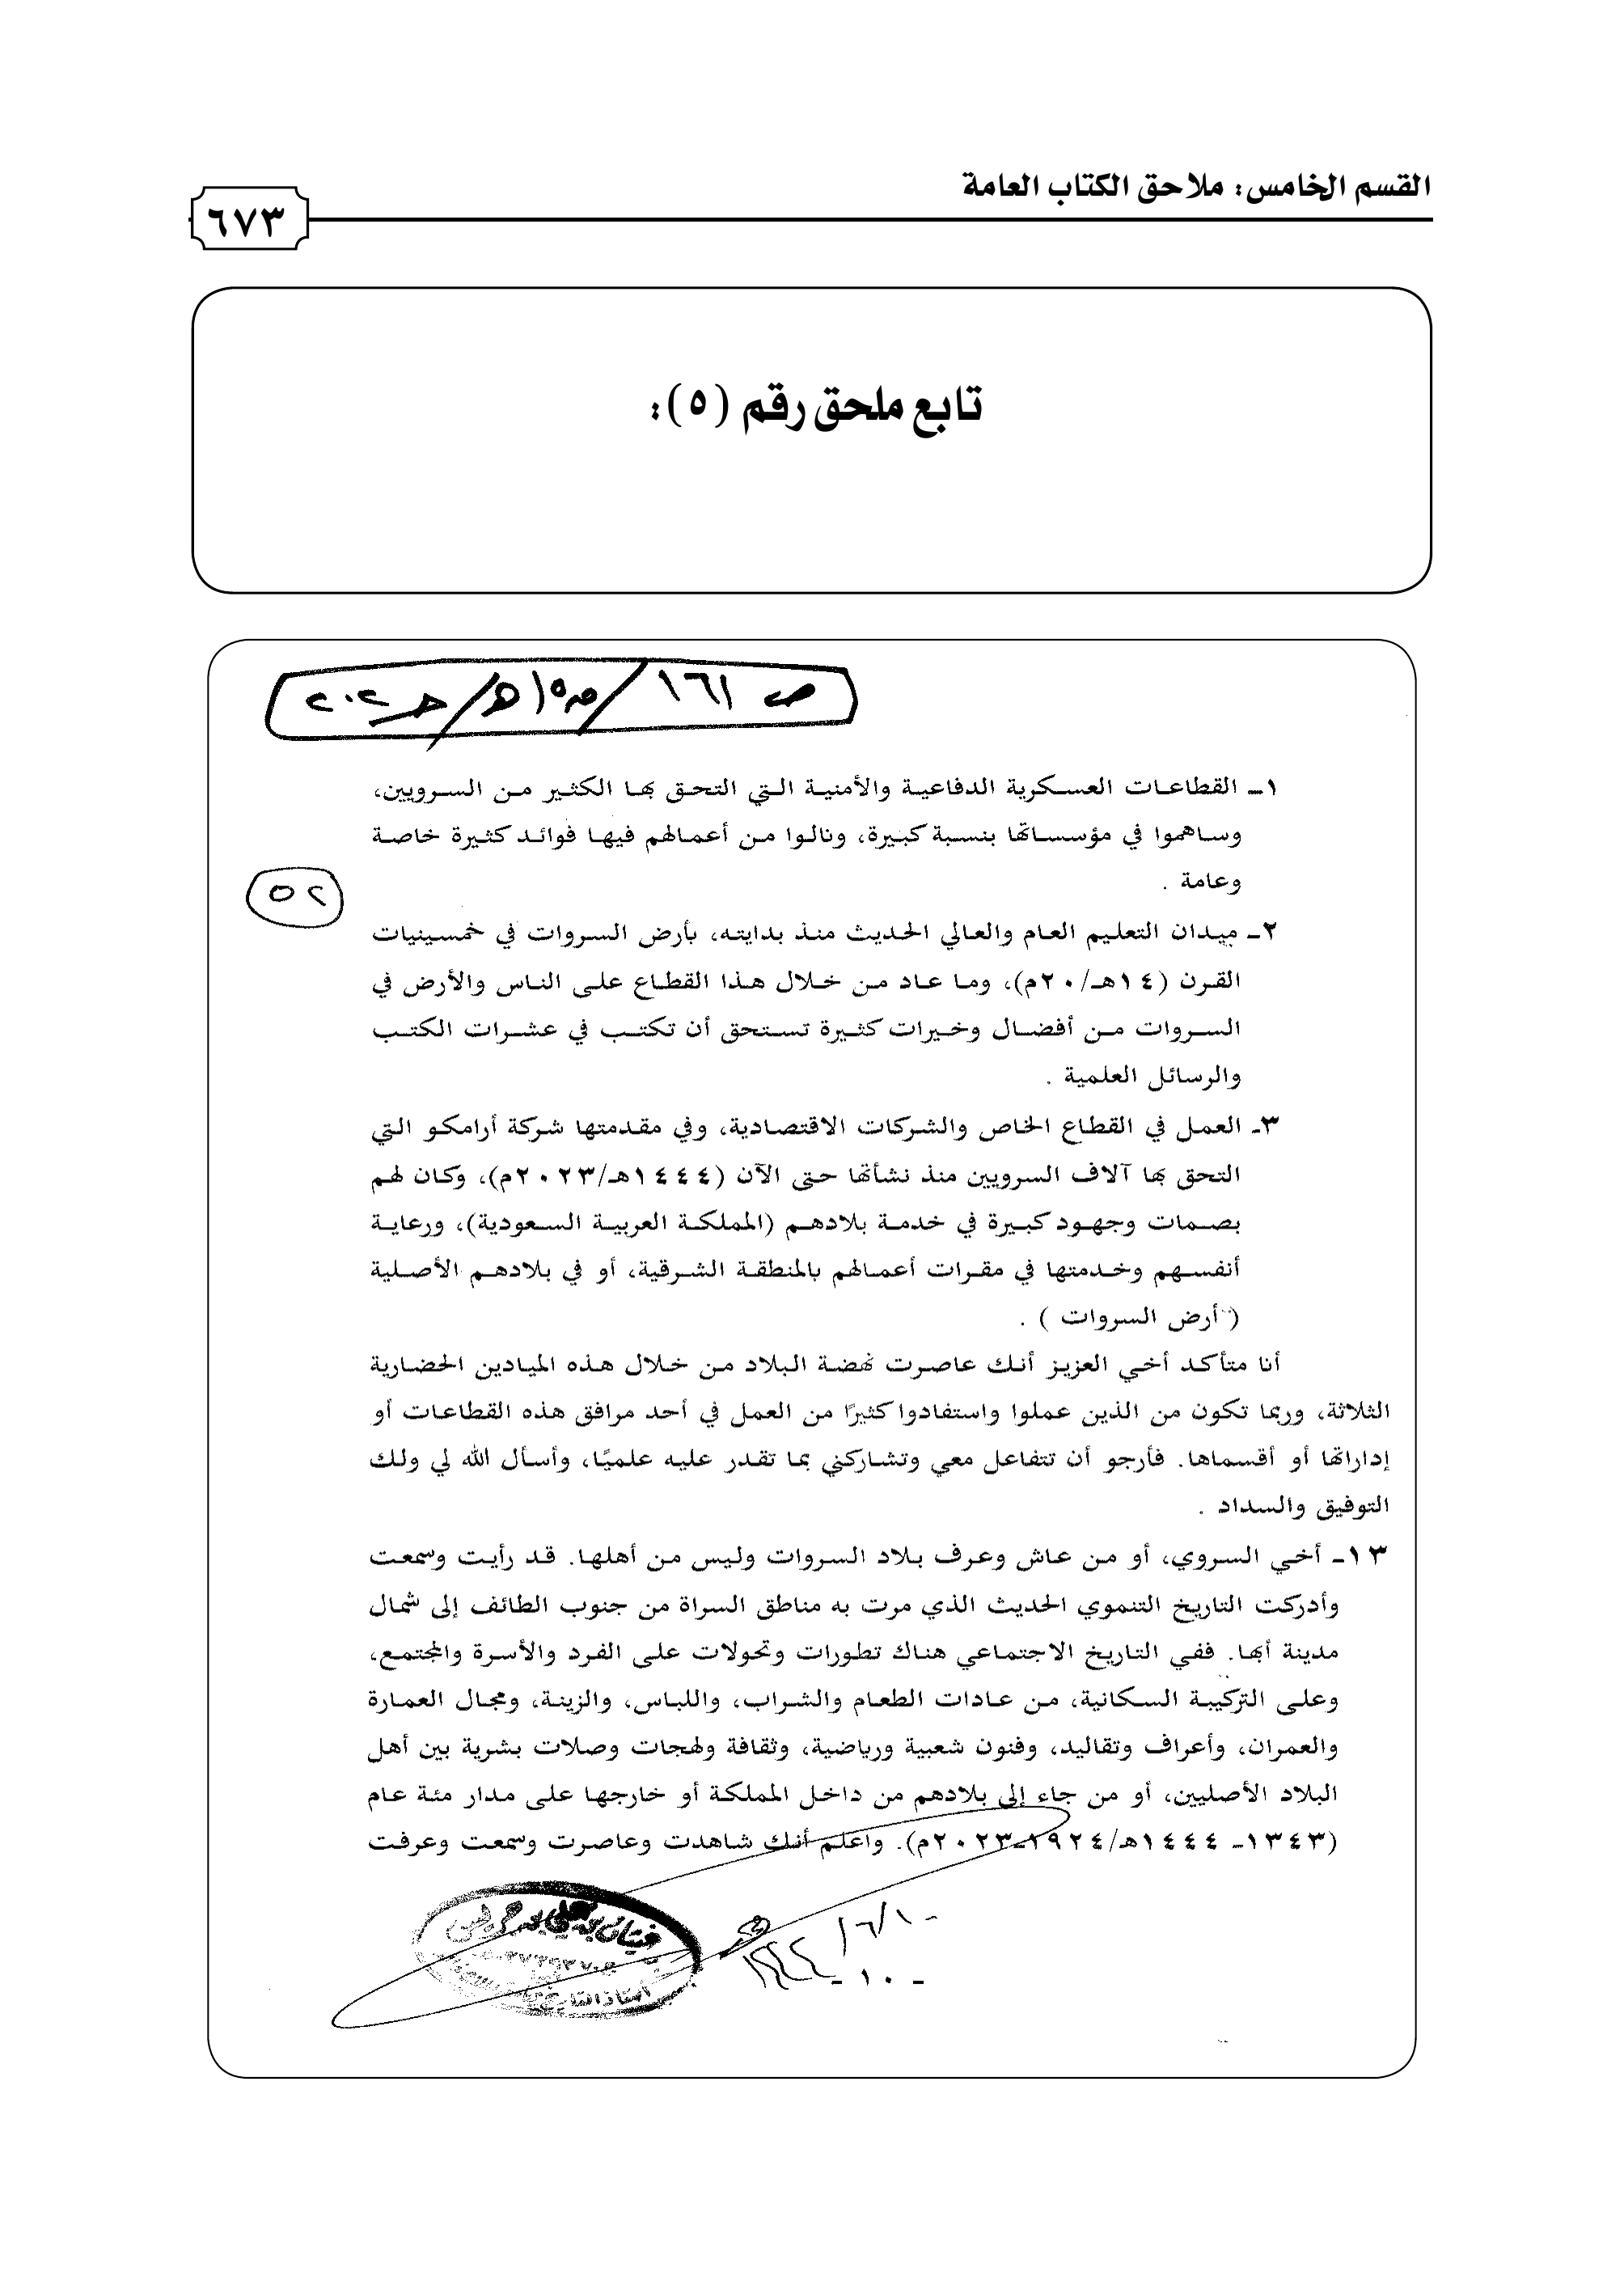 القسم الخامس: ملاحق الكتاب العامة
٦٧٣
تابع ملحق رقم (٥):
ص ١٦١
١- القطاعات العسكرية الدفاعية والأمنية التي التحق بها الكثير من السرويين،
وساهموا في مؤسساتها بنسبة كبيرة، ونالوا من أعمالهم فيها فوائد كثيرة خاصة
وعامة .
٥٢
٢- ميدان التعليم العام والعالي الحديث منذ بدايته، بأرض السروات في خمسينيات
القرن (١٤هـ/٢٠م)، وما عاد من خلال هذا القطاع على الناس والأرض في
السروات من أفضال وخيرات كثيرة تستحق أن تكتب في عشرات الكتب
والرسائل العلمية .
٣- العمل في القطاع الخاص والشركات الاقتصادية، وفي مقدمتها شركة أرامكو التي
التحق بها آلاف السرويين منذ نشأتها حتى الآن (١٤٤٤هـ/٢٠٢٣م)، وكان لهم
بصمات وجهود كبيرة في خدمة بلادهم (المملكة العربية السعودية)، ورعاية
أنفسهم وخدمتها في مقرات أعمالهم بالمنطقة الشرقية، أو في بلادهم الأصلية
(أرض السروات ) .
أنا متأكد أخي العزيز أنك عاصرت نهضة البلاد من خلال هذه الميادين الحضارية
الثلاثة، وربما تكون من الذين عملوا واستفادوا كثيرًا من العمل في أحد مرافق هذه القطاعات أو
إداراتها أو أقسماها. فأرجو أن تتفاعل معي وتشاركني بما تقدر عليه علميًا، وأسأل الله لي ولك
التوفيق والسداد .
١٣- أخي السروي، أو من عاش وعرف بلاد السروات وليس من أهلها. قد رأيت وسمعت
وأدركت التاريخ التنموي الحديث الذي مرت به مناطق السراة من جنوب الطائف إلى شمال
مدينة أبها. ففي التاريخ الاجتماعي هناك تطورات وتحولات على الفرد والأسرة والمجتمع،
وعلى التركيبة السكانية، من عادات الطعام والشراب، واللباس، والزينة، ومجال العمارة
والعمران، وأعراف وتقاليد، وفنون شعبية ورياضية، وثقافة ولهجات وصلات بشرية بين أهل
البلاد الأصليين، أو من جاء إلى بلادهم من داخل المملكة أو خارجها على مدار مئة عام
(١٣٤٣- ١٤٤٤هـ/١٩٢٤-٢٠٢٣م). واعلم أنك شاهدت وعاصرت وسمعت وعرفت